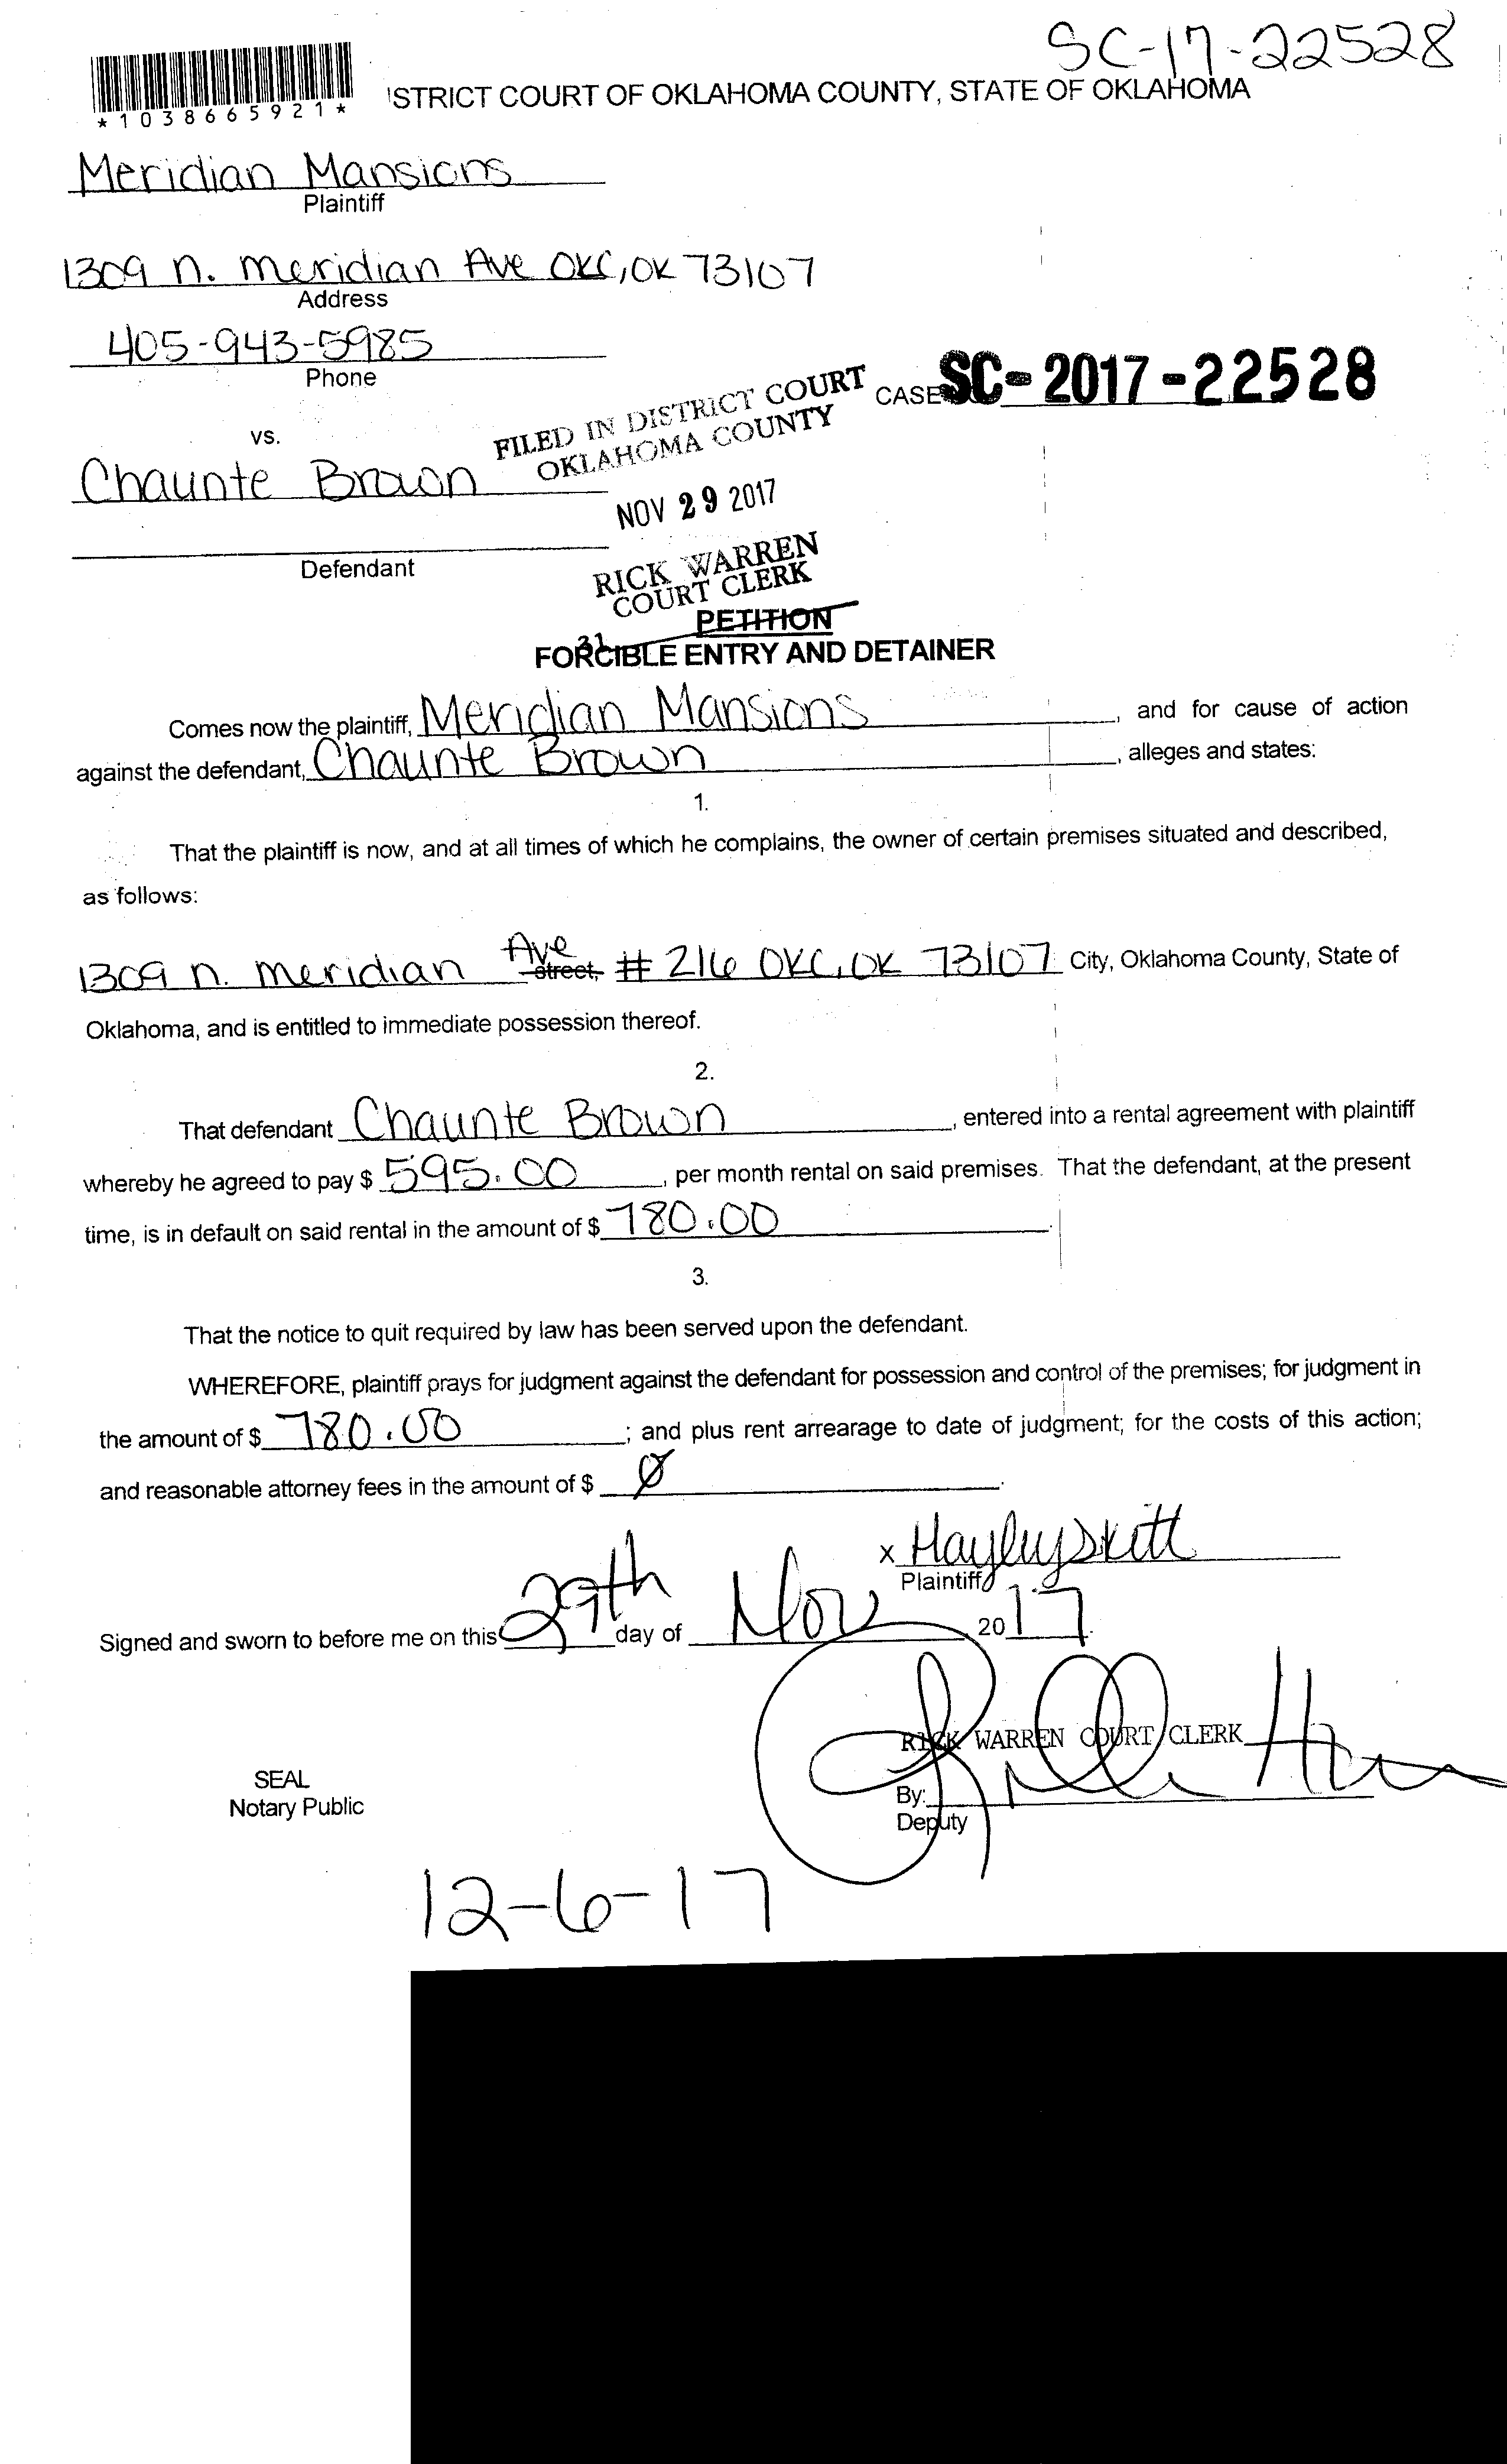 SC-17-22528
*1038665921*
ISTRICT COURT OF OKLAHOMA COUNTY, STATE OF OKLAHOMA
Meridian Mansions
Plaintiff
1309 n. meridian Ave OKC, OK 73107
Address
405-943-5985
Phone
CASE SC-2017-22528
FILED IN DISTRICT COURT
OKLAHOMA COUNTY
vs.
Chaunte Brown
NOV 29 2017
Defendant
RICK WARREN
COURT CLERK
PETITION
31
FORCIBLE ENTRY AND DETAINER
Comes now the plaintiff, Meridian Mansions, and for cause of action
against the defendant, Chaunte Brown, alleges and states:
1.
That the plaintiff is now, and at all times of which he complains, the owner of certain premises situated and described,
as follows:
1309 n. meridian Ave street, # 216 OKC, OK 73107 City, Oklahoma County, State of
Oklahoma, and is entitled to immediate possession thereof.
2.
That defendant Chaunte Brown, entered into a rental agreement with plaintiff
whereby he agreed to pay $ 595.00, per month rental on said premises. That the defendant, at the present
time, is in default on said rental in the amount of $ 780.00.
3.
That the notice to quit required by law has been served upon the defendant.
WHEREFORE, plaintiff prays for judgment against the defendant for possession and control of the premises; for judgment in
the amount of $ 780.00; and plus rent arrearage to date of judgment; for the costs of this action;
and reasonable attorney fees in the amount of $ Ø.
x
Plaintiff
Signed and sworn to before me on this 29th day of Nov, 2017.
RICK WARREN COURT CLERK
SEAL
Notary Public
By:
Deputy
12-6-17